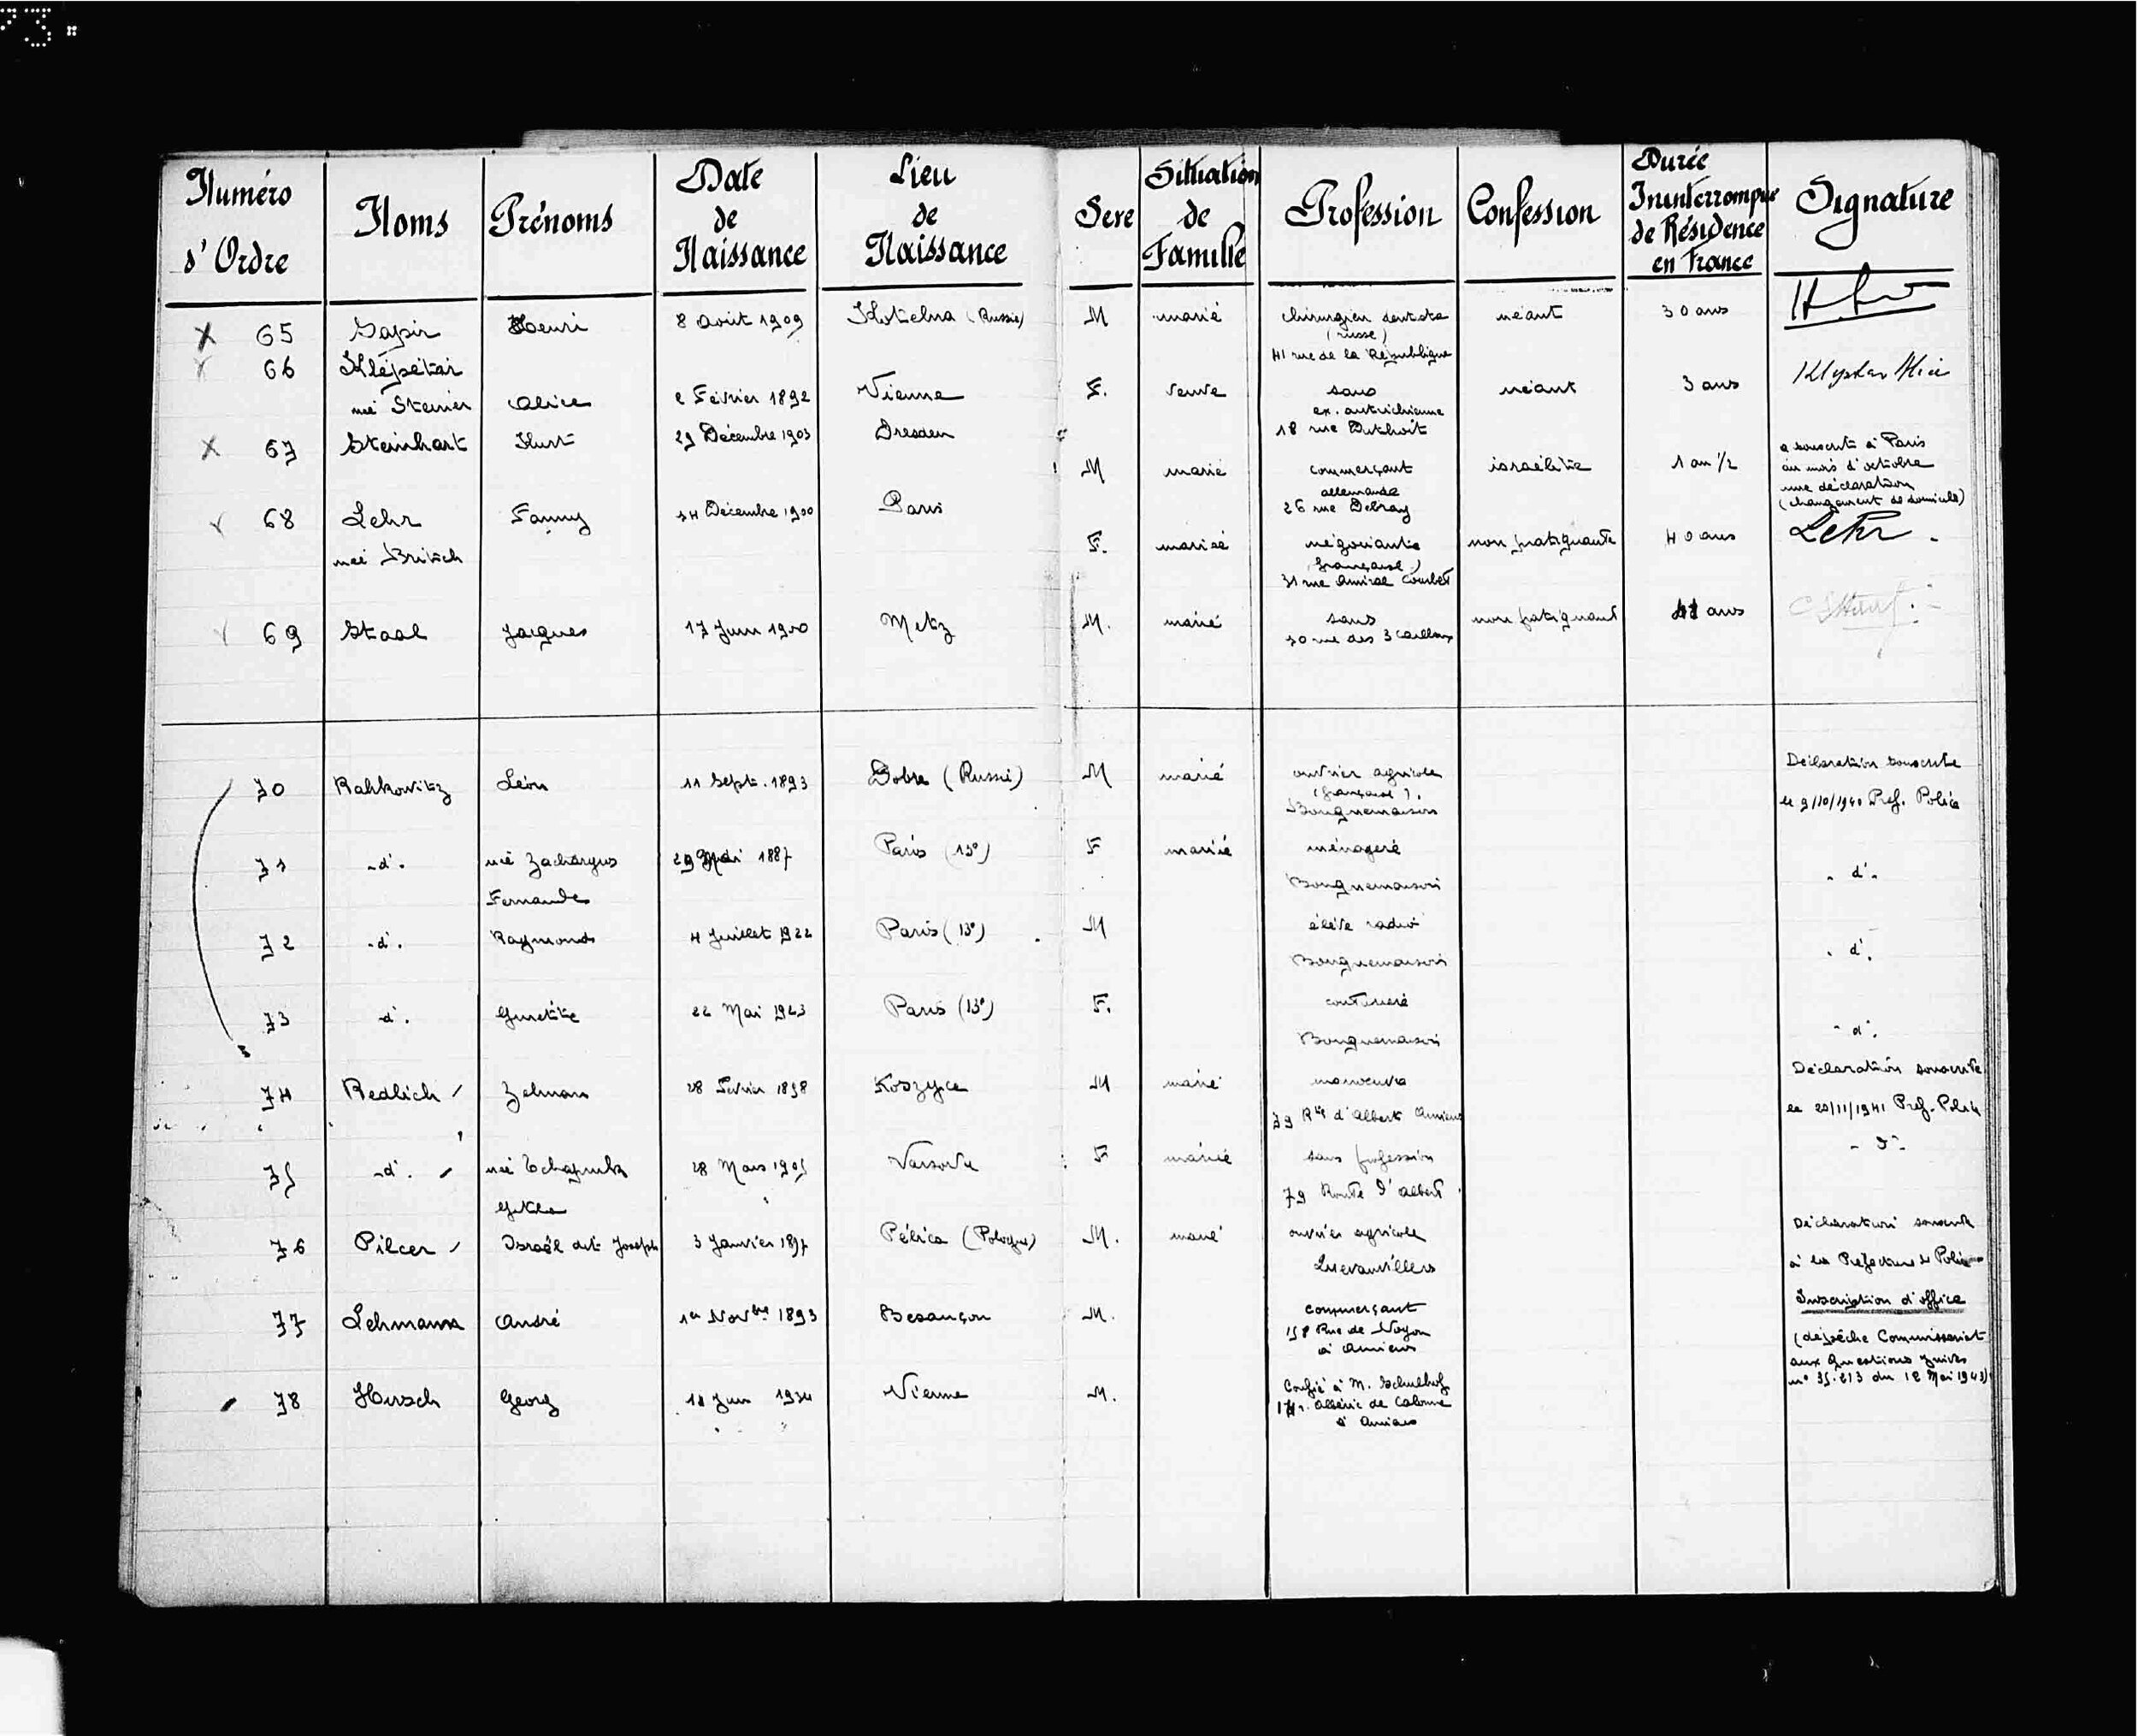 Numéro d'Ordre Noms Prénoms Date de Naissance Lieu de Naissance Sexe Situation de Famille Profession Confession Durée Ininterrompue de Résidence en France Signature
65 Sapir Henri 8 Août 1909 Kotelna (Russie) M marié chirurgien dentiste néant 30 ans
(russe)
41 rue de la République
66 Klépétar
née Steiner Alice 2 Février 1892 Vienne F. veuve sans néant 3 ans
ex. autrichienne
18 rue Duthoit
67 Steinhart Kurt 29 Décembre 1903 Dresden M marié commerçant israélite 1 an 1/2 a souscrit à Paris
au mois d'octobre
une déclaration
(changement de domicile)
allemande
26 rue Debray
68 Lehr Fanny 24 Décembre 1900 Paris F. mariée négociante non pratiquante 40 ans Lehr.
née Britsch
(française)
31 rue Amiral Courbet
69 Staal Jacques 17 Juin 1900 Metz M. marié sans non pratiquant 41 ans
30 rue des 3 Cailloux
70 Rahkowitz Léon 11 Sept. 1893 Dobre (Russie) M marié ouvrier agricole Déclaration souscrite
(française). le 9/10/1940 Pref. Police
Bouquemaison
71 -d°- née Zachargus 29 Mai 1887 Paris (13e) F mariée ménagère - d°-
Fernande Bouquemaison
72 -d°. Raymond 4 Juillet 1922 Paris (13e) M élève radio - d°.
Bouquemaison
73 -d°. Ginette 22 Mai 1923 Paris (13e) F. couturière - d°.
Bouquemaison
74 Redlich Zelman 28 Février 1898 Koszyce M marié manoeuvre Déclaration souscrite
79 Rte d'Albert Amiens le 20/11/1941 Pref. Police
75 -d°. née 28 Mars 1905 Varsovie F mariée sans profession - d°-
Gitkla 79 Route d'Albert
76 Pilcer Israël dit Joseph 3 Janvier 1897 Pélica (Pologne) M. marié ouvrier agricole Déclaration souscrite
Quevauvillers à la Préfecture de Police
77 Lehmann André 1er Novbre 1893 Besançon M. commerçant Inscription d'office
158 Rue de Noyon (dépêche Commissariat
à Amiens aux Questions Juives
n° 35.213 du 12 Mai 1943)
78 Hirsch Georg 18 Juin 1934 Vienne M. Confié à M. Schulhof
17 r. Albéric de Calonne
à Amiens